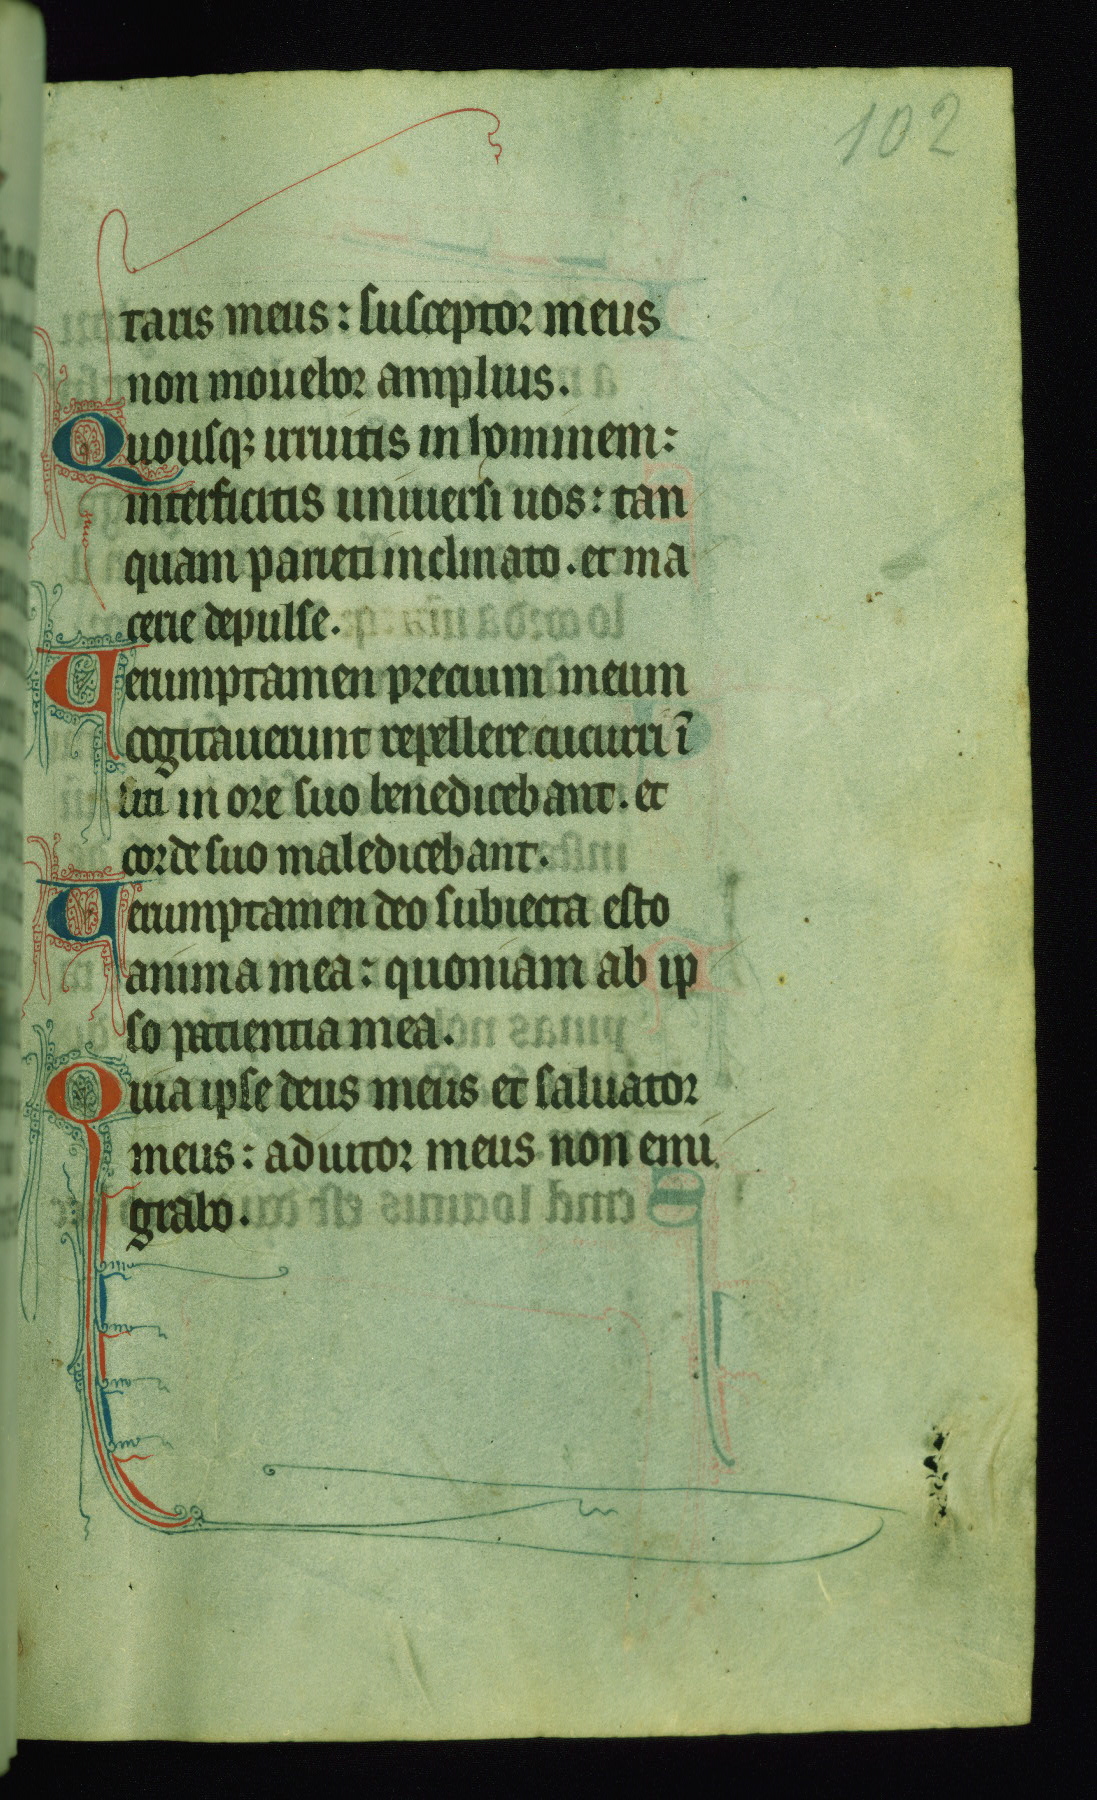 102
taris meus : susceptor meus
non mouebor amplius .
Quousqꝫ irruitis in hominem :
interficitis uniuersi uos : tan
quam parieti inclinato . et ma
cerie depulse .
Uerumptamen precium meum
cogitauerunt repellere cucurri ī
siti in ore suo benedicebant . et
corde suo maledicebant .
Uerumptamen deo subiecta esto
anima mea : quoniam ab ip
so patientia mea .
Quia ipse deus meus et saluator
meus : adiutor meus non emi
grabo .